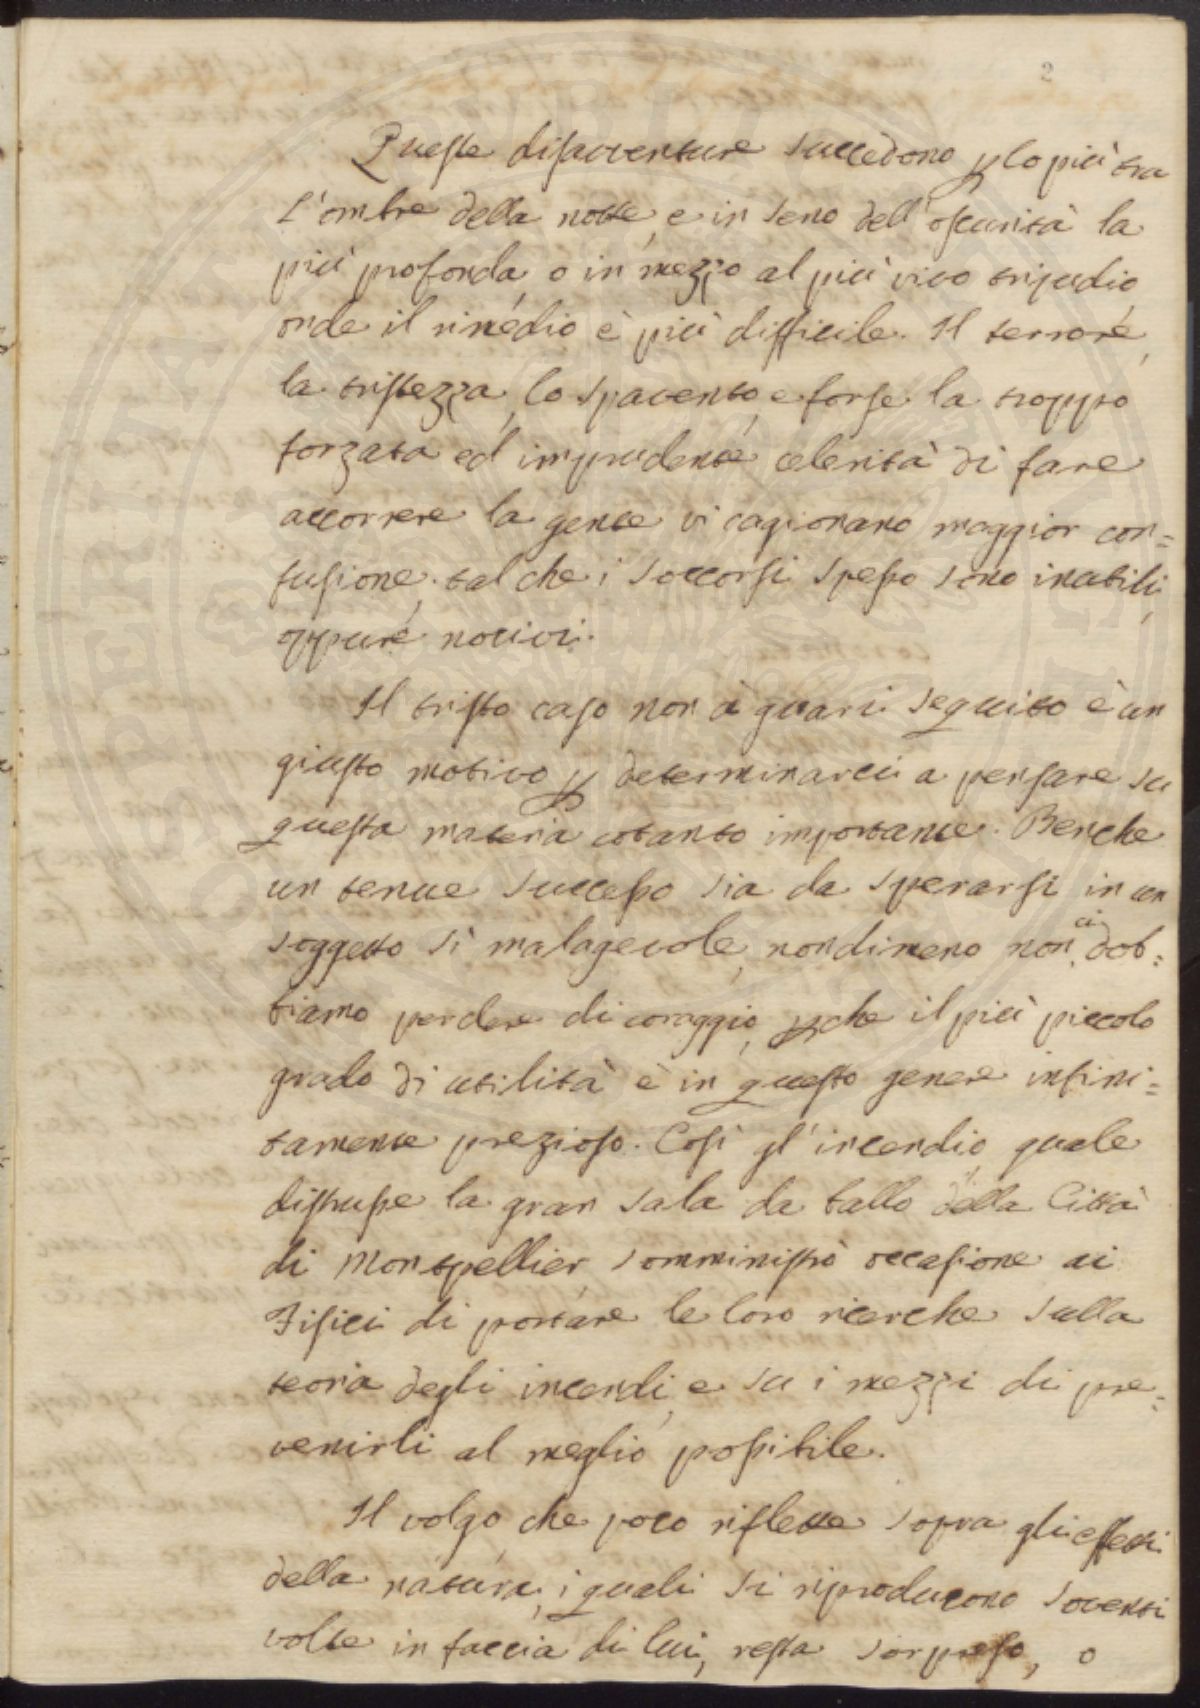 2
Queste disavventure succedono p lo più tra
l'ombre della notte, e in seno dell'oscurità la
più profonda o in mezzo al più vivo tripudio
onde il rimedio è più difficile. Il terrore,
la tristezza, lo spavento, e forse la troppo
forzata ed imprudente celerità di fare
accorrere la gente vi cagionano maggior con=
fusione, tal che i soccorsi spesso sono inutili,
oppure nocivi.
Il tristo caso non à guari seguito è un
giusto motivo p determinarci a pensare su
questa materia cotanto importante. Benche
un tenue successo sia da sperarsi in un
soggetto sì malagevole, nondimeno non ci dob=
biamo perdere di coraggio, pche il più piccolo
grado di utilità è in questo genere infini=
tamente prezioso. Così gl'incendio, quale
distrusse la gran sala da ballo della Città
di Montpellier, somministrò occasione ai
Fisici di portare le loro ricerche sulla
teoria degli incendi, e su i mezzi di pre=
venirli al meglio possibile.
Il volgo, che poco riflette sopra gli effetti
della natura, i quali si riproducono soventi
volte in faccia di lui, resta sorpreso, o